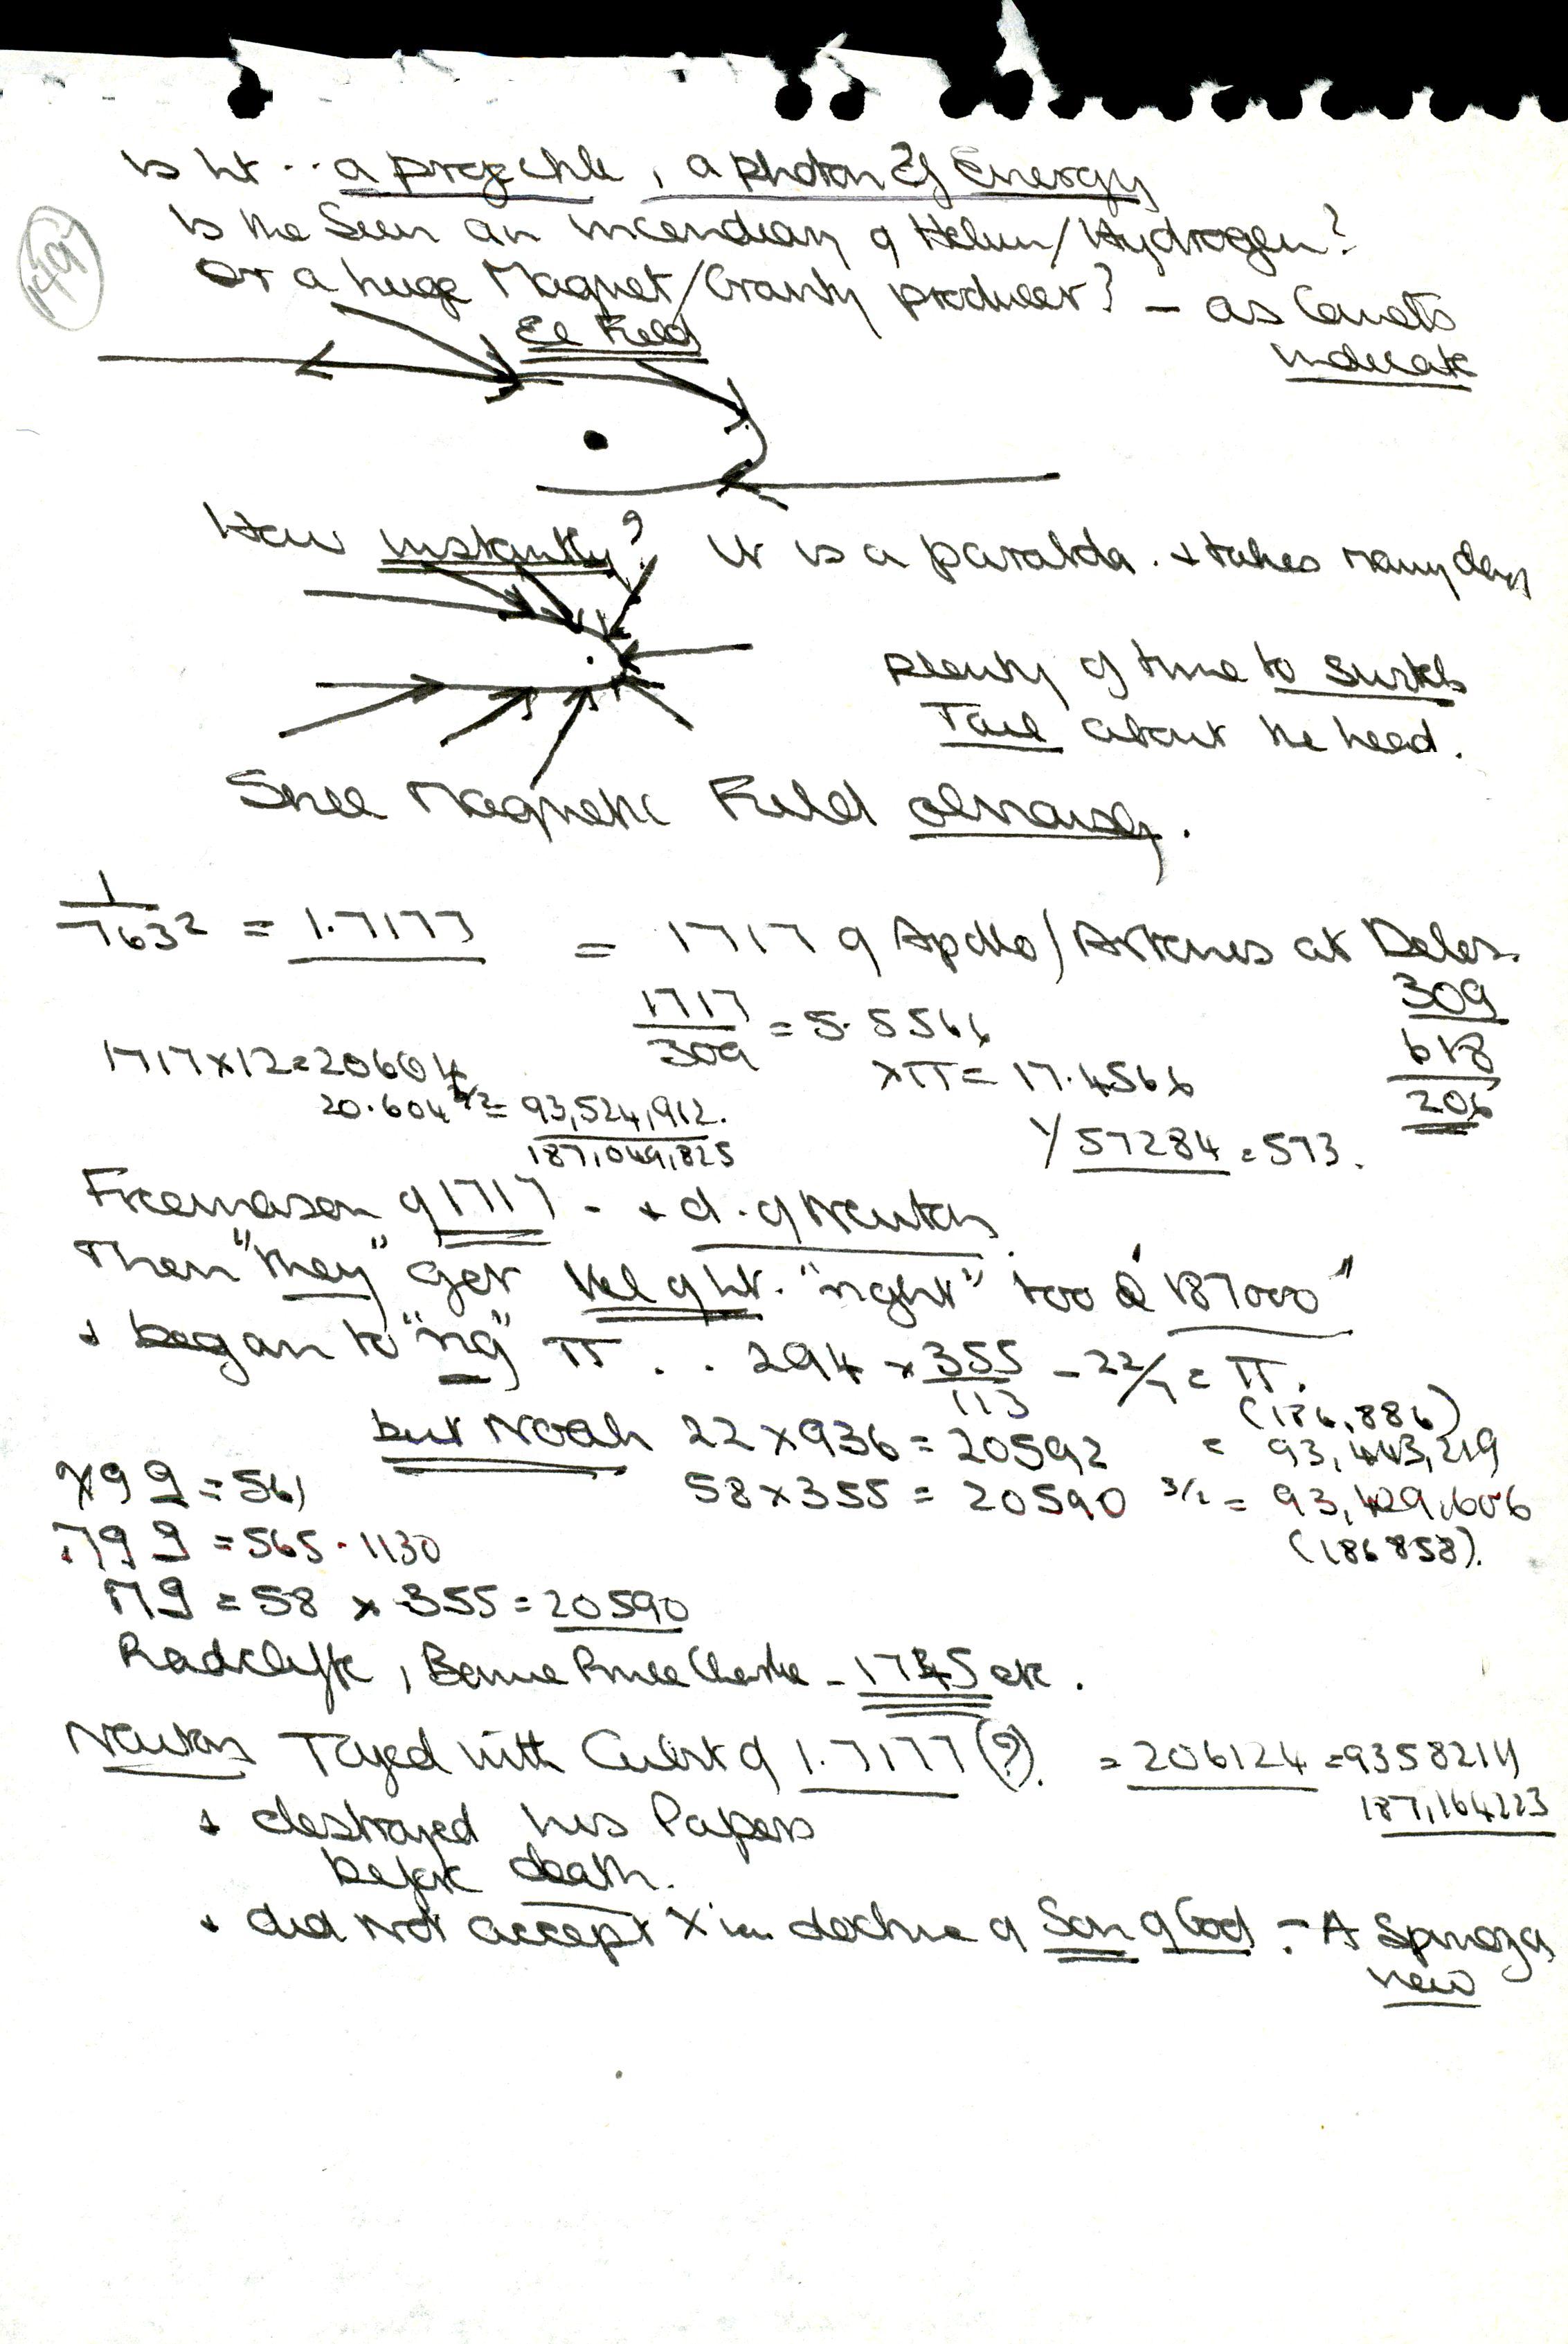 149
Is Lt .. a projectile, a photon of Energy
Is the Seen an incendiary of Helium/Hydrogen?
Or a huge Magnet/Gravity producer? - as Comets
El Field
indicate
How instantly? It is a parabola. + takes many days
plenty of time to switch
Tail about the head.
Magnetic Field obviously.
1/763² = 1.7177 = 1717 of Apollo/Artemis at Delos.
1717/309 = 5.5566
309
618
206
1717x12=20604
xπ = 17.4566
20.604 3/2= 93,524,912.
187,049,825
1/57284 = 573.
Freemason of 1717 - + d. of Newton.
Then "they" get Vel of Lt. "right" too @ "187000"
+ began to "rig" π .. 294 x 355/113 - 22/7 = π.
(186,886)
but Noah 22 x 936 = 20592 = 93,443,219
= 561
58 x 355 = 20590 3/2 = 93,429,606
= 565 . 1130
(186858).
= 58 x 355 = 20590
Radclyffe, Bonnie Prince Charlie - 1745 etc.
Newton Toyed with Cubit of 1.7177 (?). = 206124 = 9358211
187,164223
+ destroyed his Papers
before death.
+ did not accept Xian doctrine of Son of God - A Spinoza
view